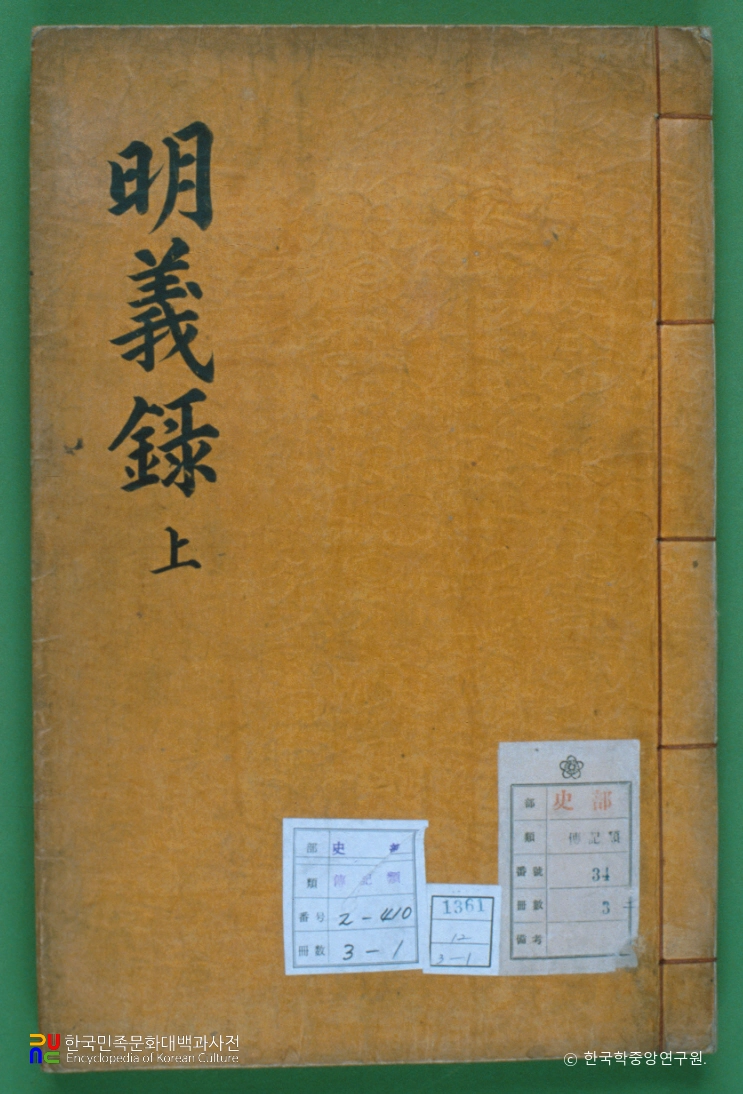 明義錄
上
部 史 部
類 傳記類
番號 34
冊數 3
備考
部 史
類 傳記類
番号 2-410
冊數 3-1
1361
12
3-1
한국민족문화대백과사전
Encyclopedia of Korean Culture
© 한국학중앙연구원.